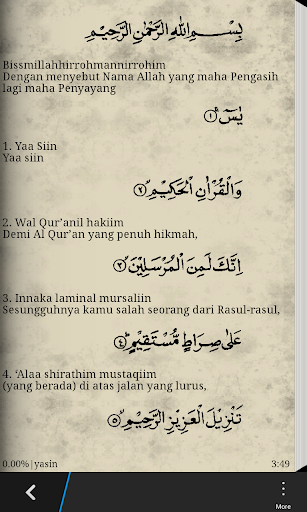 بِسْــــمِ اللهِ الرَّحْمٰنِ الرَّحِيْمِ
Bissmillahhirrohmannirrohim
Dengan menyebut Nama Allah yang maha Pengasih
lagi maha Penyayang
يٰسٓ ۝١
1. Yaa Siin
Yaa siin
وَالْقُرْاٰنِ الْحَكِيْمِ ۝٢
2. Wal Qur'anil hakiim
Demi Al Qur'an yang penuh hikmah,
اِنَّكَ لَمِنَ الْمُرْسَلِيْنَ ۝٣
3. Innaka laminal mursaliin
Sesungguhnya kamu salah seorang dari Rasul-rasul,
عَلٰى صِرَاطٍ مُّسْتَقِيْمٍ ۝٤
4. 'Alaa shirathim mustaqiim
(yang berada) di atas jalan yang lurus,
تَنْزِيْلَ الْعَزِيْزِ الرَّحِيْمِ ۝٥
0.00%|yasin 3:49
More